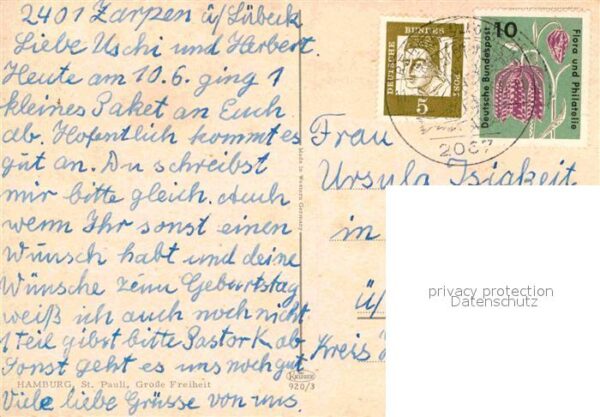 2401 Zarpen ü/Lübeck
Liebe Uschi und Herbert.
Heute am 10.6. ging 1
kleines Paket an Euch
ab. Hofentlich kommt es
gut an. Du schreibst
mir bitte gleich. Auch
wenn Ihr sonst einen
Wunsch habt und deine
Wünsche zum Geburtstag
weiß ich auch noch nicht
1 Teil gibst bitte Pastor K ab
Sonst geht es uns noch gut
HAMBURG, St. Pauli, Große Freiheit
Viele liebe Grüsse von uns.
Made in Western Germany
KRÜGER
920/3
DEUTSCHE BUNDESPOST
5
10
Deutsche Bundespost
Flora und Philatelie
2067
Frau
Ursula Isiakeit
in
ü/
Kreis
privacy protection
Datenschutz